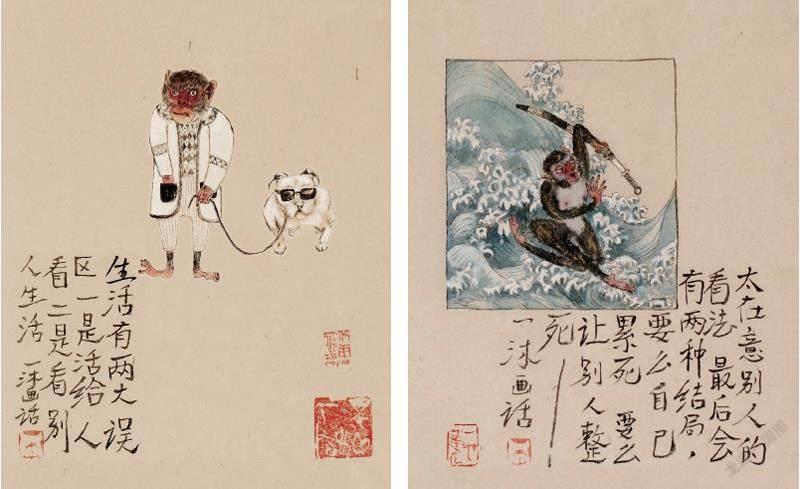 生活有两大误
区 一是活给人
看 二是看别
人生活 一沐画话
太在意别人的
看法 最后会
有两种结局，
要么自己
累死 要么
让别人整
死
一沐画话